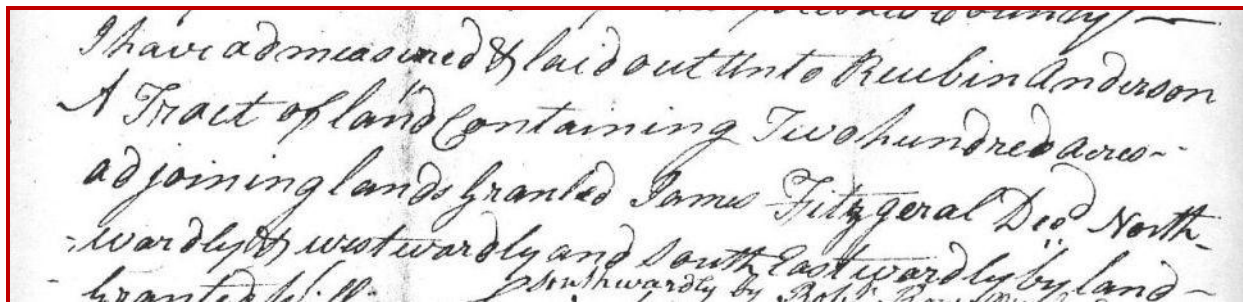 County
I have admeasured & laid out Unto Reubin Anderson
A Tract of land Containing Two hundred acres
adjoining lands Granted James Fitzgeral Decd North-
-wardly & westwardly and South Eastwardly by land
Southwardly by Robt
Granted